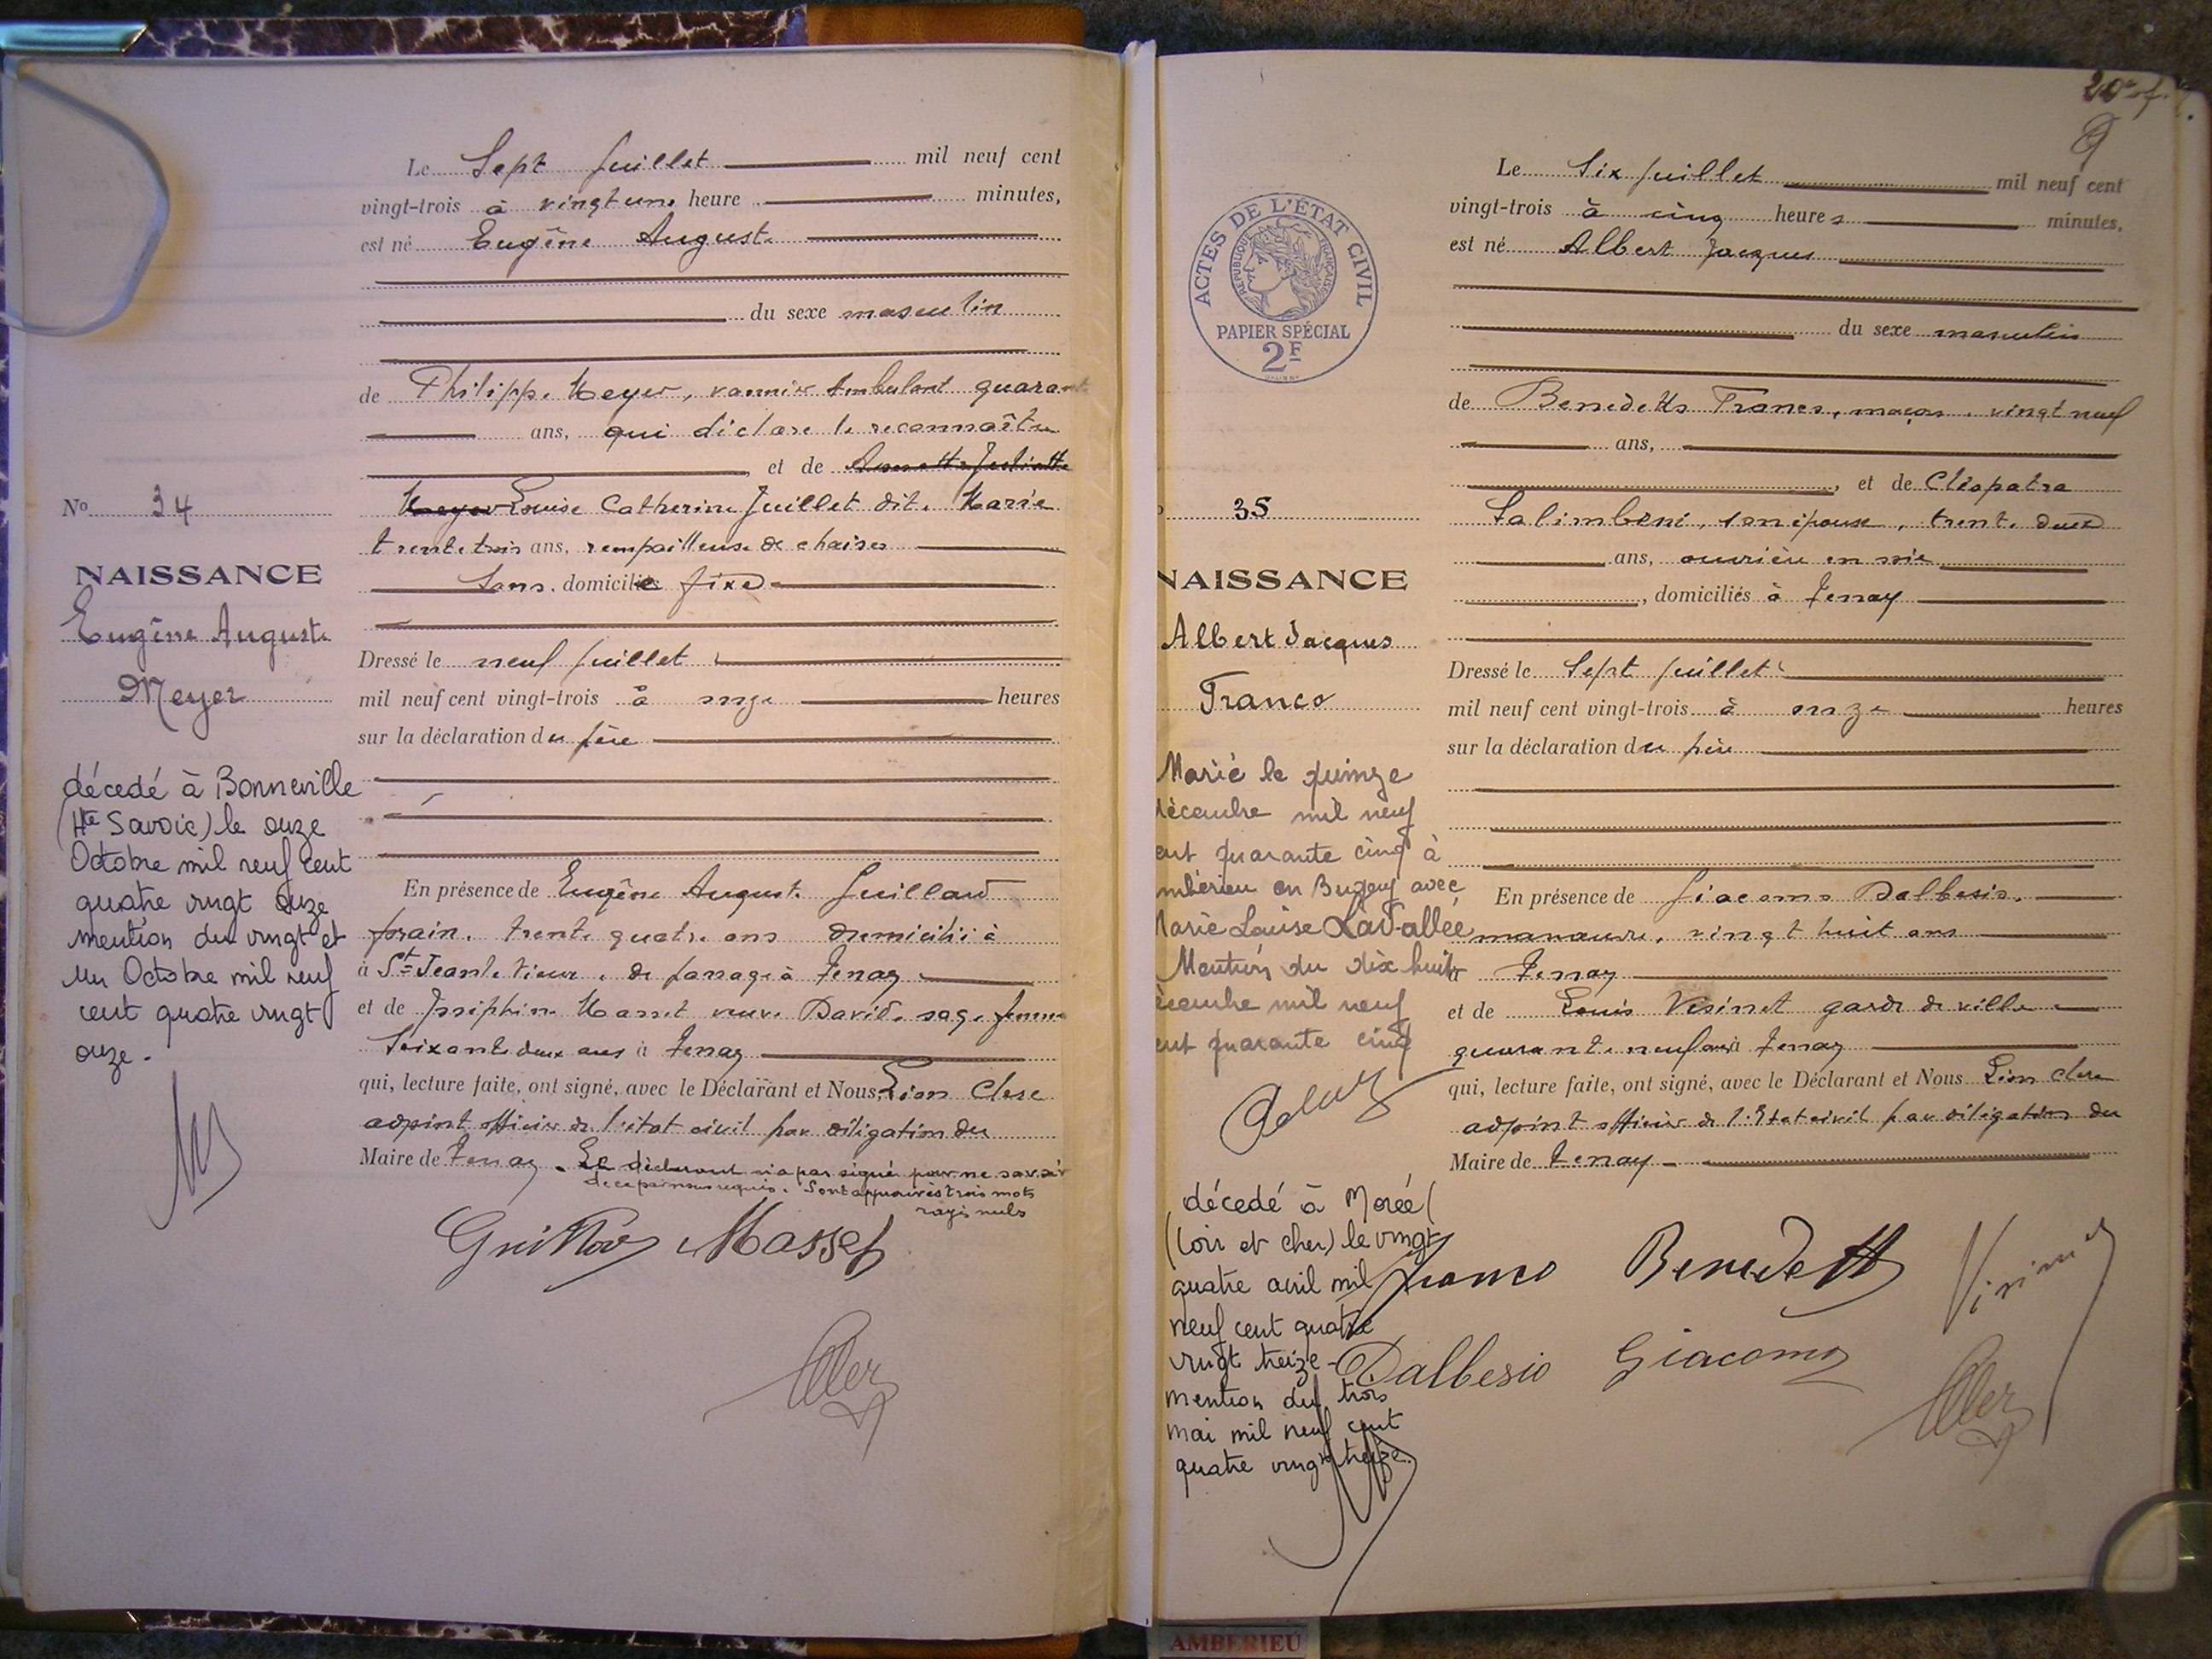 Le Sept Juillet mil neuf cent
vingt-trois à vingt une heure minutes,
est né Eugène Auguste
du sexe masculin
de Philippe Meyer, vannier Ambulant quarante
ans, qui déclare le reconnaître
et de Juliette
Meyer Louise Catherine Juillet dite Marie
trente trois ans, rempailleuse de chaises
Sans domicile fixe
Dressé le neuf Juillet
mil neuf cent vingt-trois à onze heures
sur la déclaration du père
En présence de Eugène Auguste
forain, trente quatre ans domicilié à
à St Jean le Vieux, de passage à Tenay
et de Joséphine Masset veuve David, sage femme
Soixante deux ans à Tenay
qui, lecture faite, ont signé, avec le Déclarant et Nous, Léon Clerc
adjoint officier de l'état civil par délégation du
Maire de Tenay. Le déclarant n'a pas signé pour ne savoir
de ce par nous requis. Sont approuvés trois mots
rayés nuls
Masset
No 34
NAISSANCE
Eugène Auguste
Meyer
décedé à Bonneville
(Hte Savoie) le onze
Octobre mil neuf cent
quatre vingt onze
mention du vingt et
un Octobre mil neuf
cent quatre vingt
onze.
20e f.
Le Six Juillet mil neuf cent
vingt-trois à cinq heures minutes,
est né Albert Jacques
du sexe masculin
de Benedetto Franco, maçon, vingt neuf
ans,
, et de Cléopatra
Salimbeni, son épouse, trente deux
ans, ouvrière en soie
, domiciliés à Tenay
Dressé le Sept Juillet
mil neuf cent vingt-trois à onze heures
sur la déclaration du père
En présence de Giacomo Dalbesio,
manœuvre, vingt huit ans
à Tenay
et de Louis Vesinet garde de ville
quarante neuf ans à Tenay
qui, lecture faite, ont signé, avec le Déclarant et Nous Léon Clerc
adjoint officier de l'Etat civil par délégation du
Maire de Tenay
Franco Benedetto
Dalbesio Giacomo
ACTES DE L'ÉTAT CIVIL
RÉPUBLIQUE FRANÇAISE
PAPIER SPÉCIAL
2F
35
NAISSANCE
Albert Jacques
Franco
Marié le quinze
décembre mil neuf
ent quarante cinq à
mbérieu en Bugey avec
Marie Louise Lavallée
Mention du dix huit
écembre mil neuf
ent quarante cinq
décedé à Morée
(Loir et cher) le vingt
quatre avril mil
neuf cent quatre
vingt treize
mention du trois
mai mil neuf cent
quatre vingt treize.
AMBERIEU